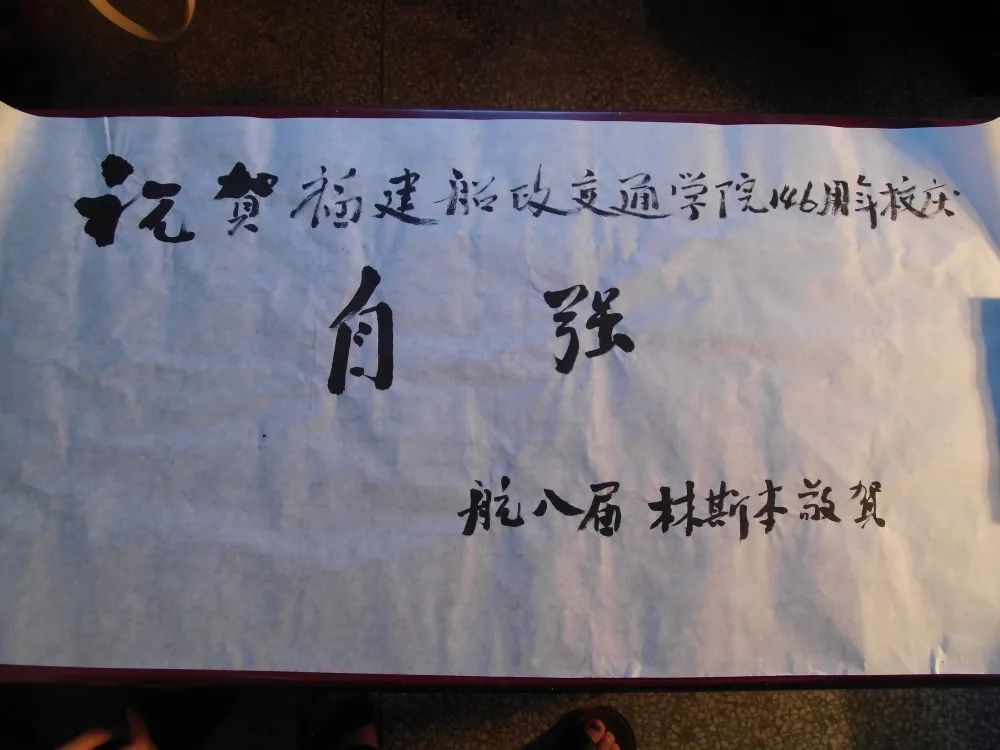 祝賀福建船政交通学院146周年校庆
自强
航八届 林斯本敬贺